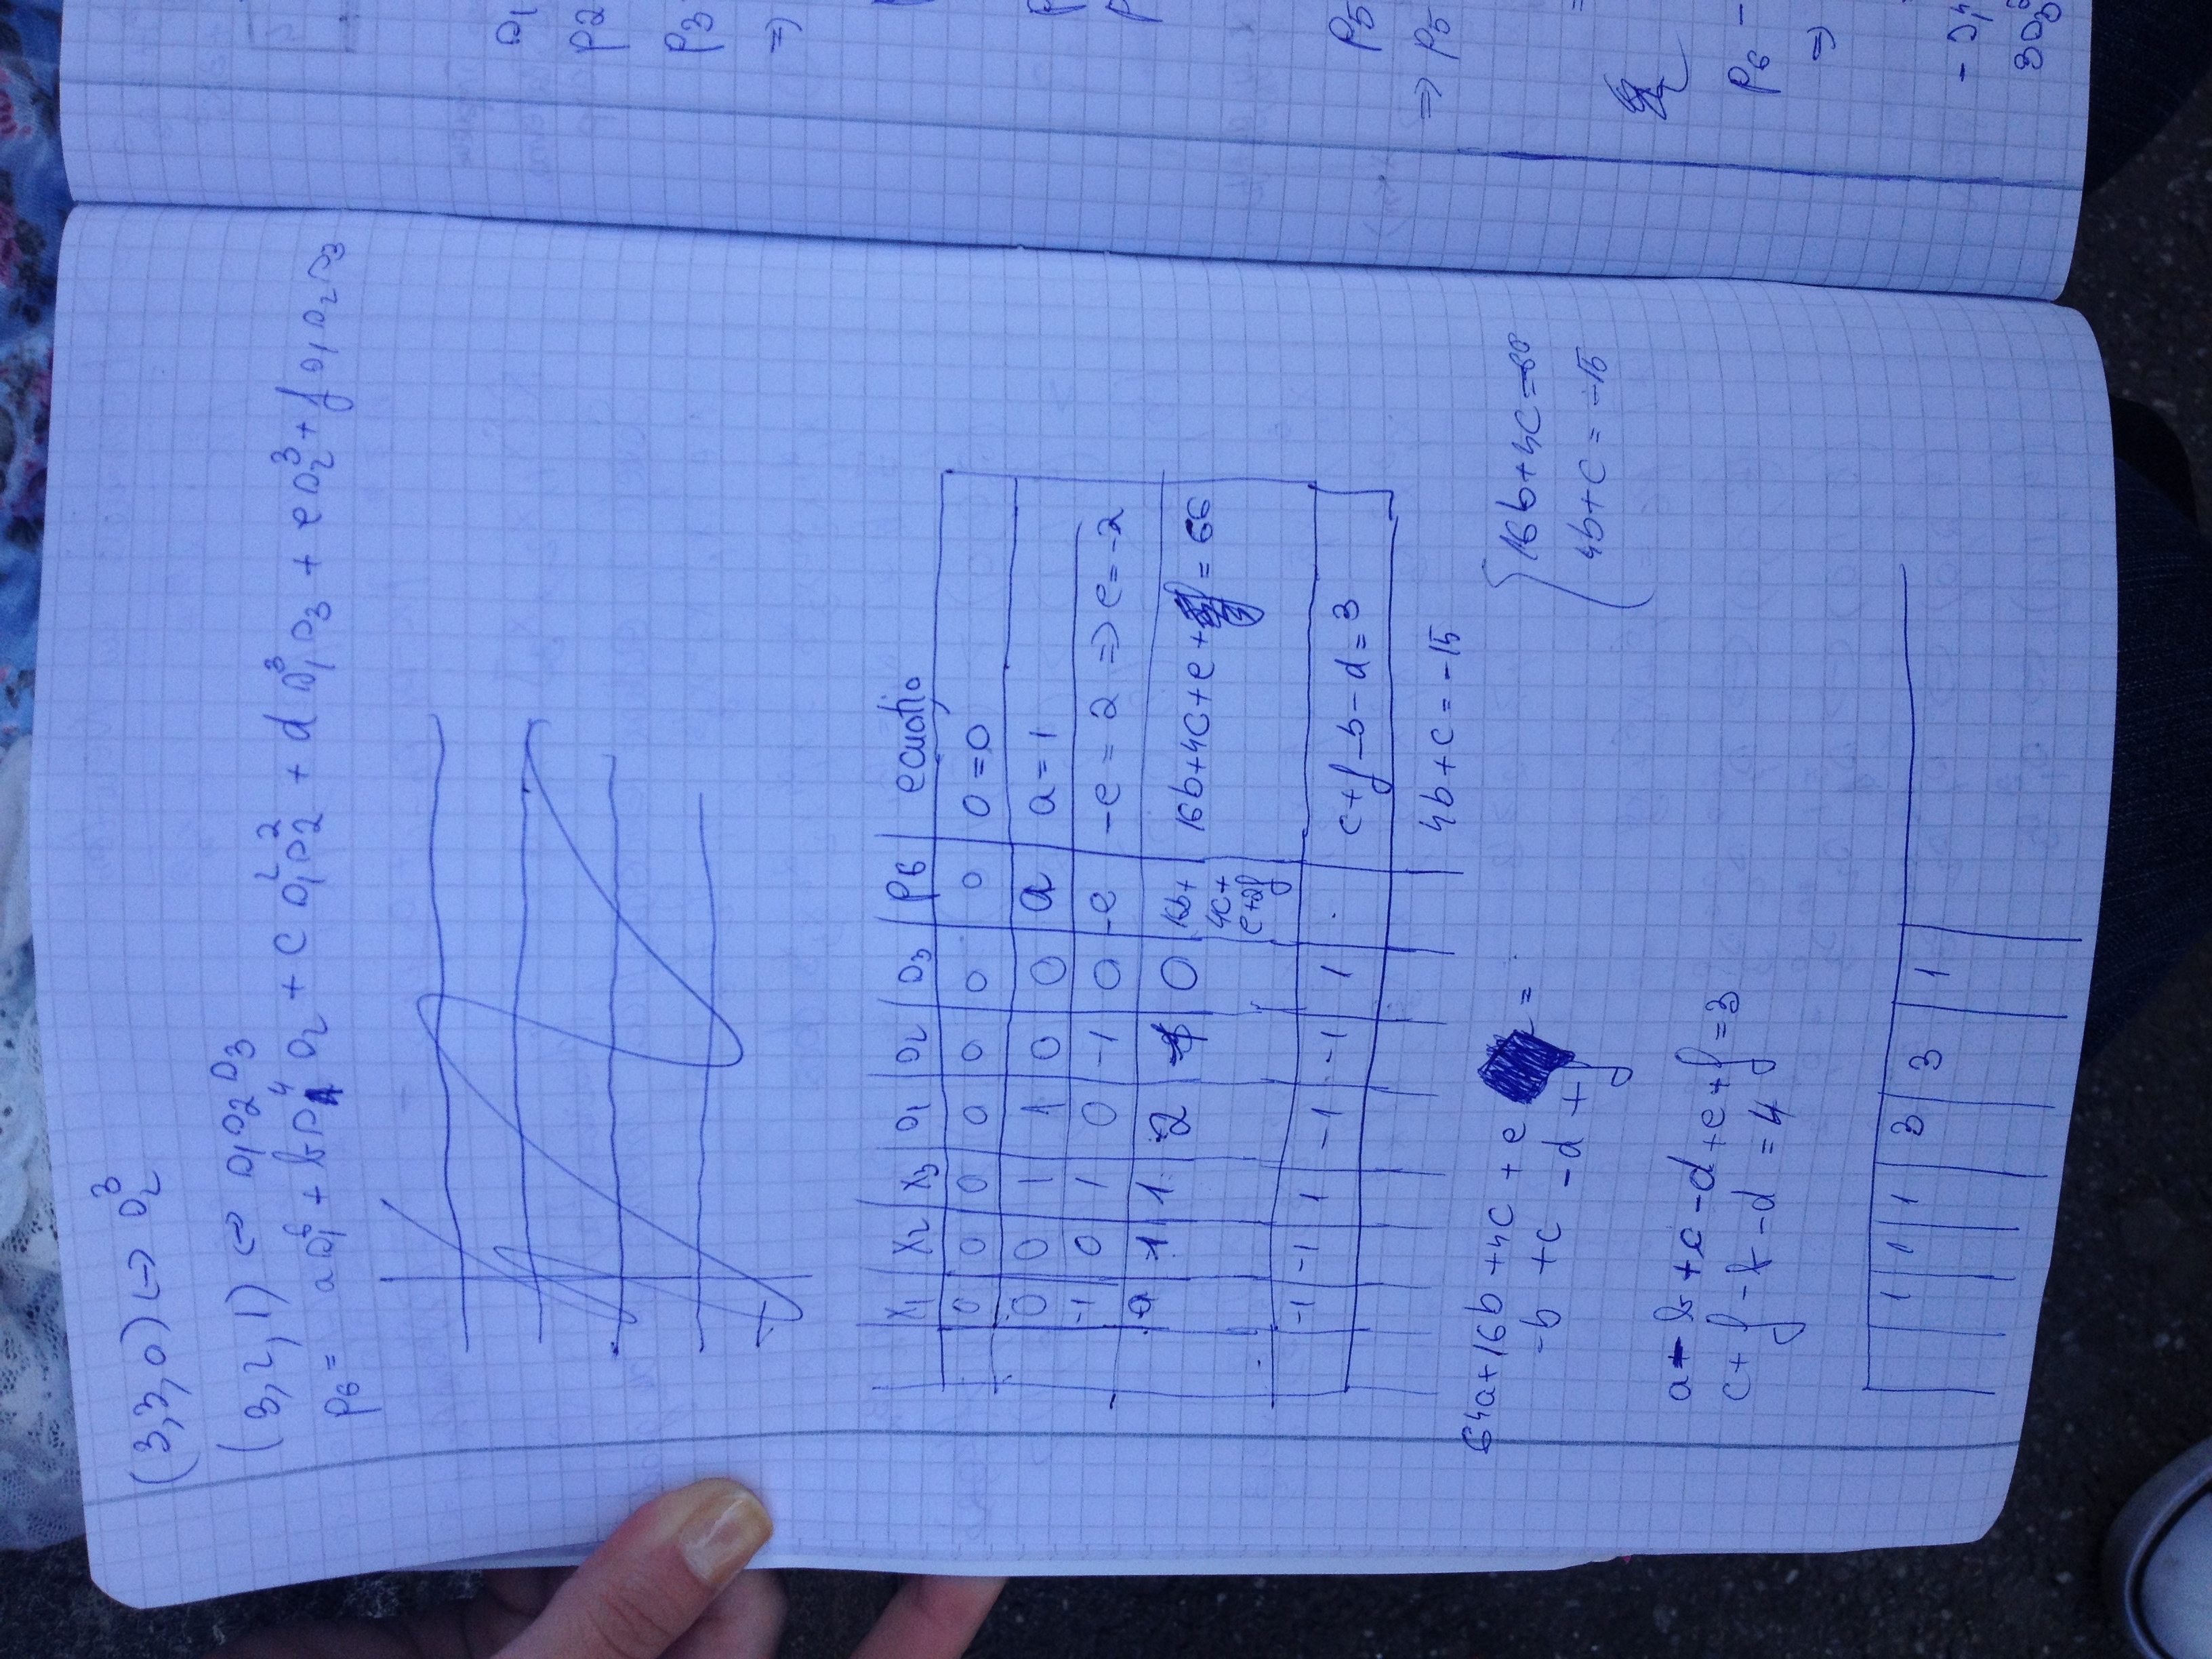 (3,3,0) ↔ σ₂³
(3,2,1) ↔ σ₁σ₂σ₃
p₆ = aσ₁⁶ + bσ₁⁴σ₂ + cσ₁²σ₂² + dσ₁³σ₃ + eσ₂³ + fσ₁σ₂σ₃
x₁ x₂ x₃ σ₁ σ₂ σ₃ p₆ ecuația
0 0 0 0 0 0 0 0=0
0 0 1 1 0 0 a a=1
-1 0 1 0 -1 0 -e -e = 2 ⇒ e=-2
1 1 2 0 16b+ 16b+4c+e+ = 66
4c+
e+2f
-1 -1 1 -1 -1 1 c+f-b-d=3
4b+c=-15
64a+16b+4c+e =
-b +c -d +f
{ 16b+4c=-60
4b+c = -15
a-b+c-d+e+f=3
c+f-b-d=4
1 1 1 3 3 1
σ₁
p2
p3
⇒
p
p
p5
⇒ p5
p6 -
⇒